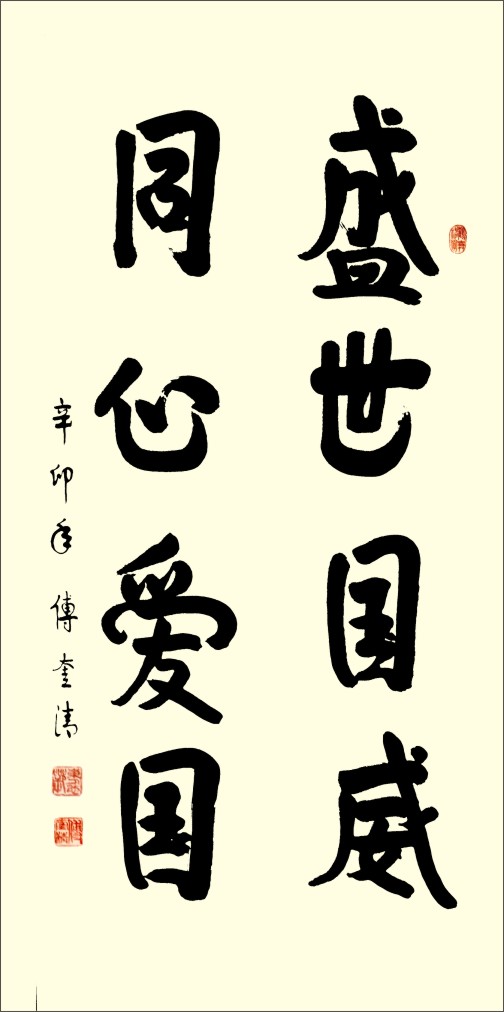 盛世国威
同心爱国
辛卯年 傅奎清